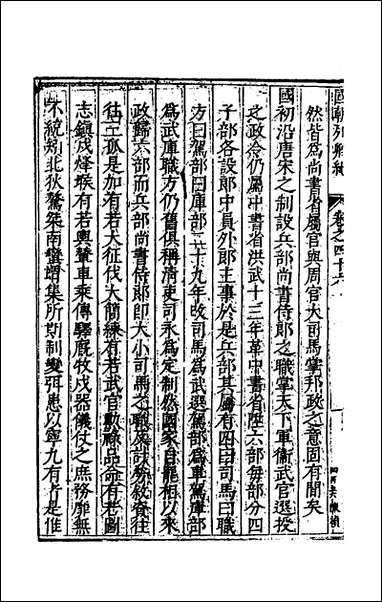 國朝列卿紀 卷之四十六
然皆為尚書省屬官與周官大司馬掌邦政之意固有間矣
國初沿唐宋之制設兵部尚書侍郎之職掌天下軍衛武官選授
之政令仍屬中書省洪武十三年革中書省陞六部每部分四
子部各設郎中員外郎主事於是兵部其屬有四曰司馬曰職
方曰駕部曰庫部二十九年改司馬為武選駕部為車駕庫部
為武庫職方仍舊俱稱清吏司永為定制然國家自罷相以來
政歸六部而兵部尚書侍郎即大小司馬之職及計務敘資往
往三孤是加有若大征伐大簡練有若武官勳祿品命有若圖
志鎮戍烽堠有若輿輦車乘傳驛廄牧戎器儀仗之庶務靡無
不統矧北狄驁桀南蠻蝟集所期制變弭患以寧九有是惟